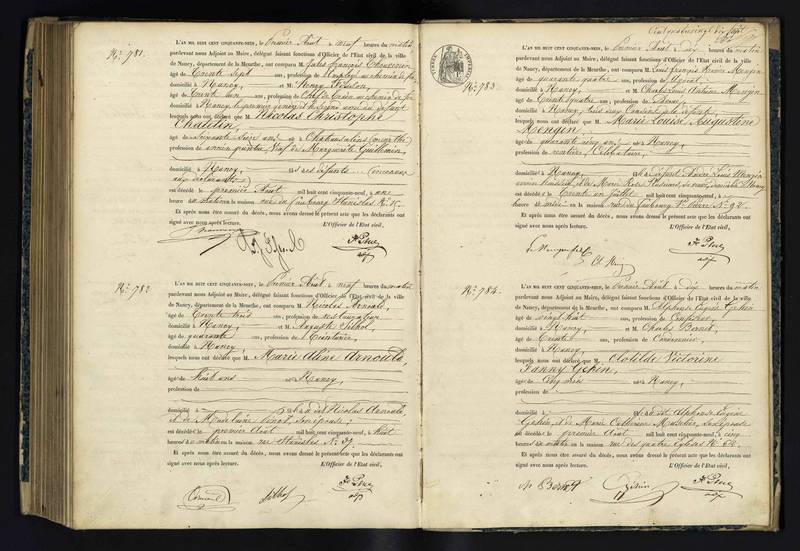 N.º 781.
L'AN MIL HUIT CENT CINQUANTE-NEUF, le Premier Août à neuf heures du matin
pardevant nous Adjoint au Maire, délégué faisant fonctions d'Officier de l'Etat civil de la ville
de Nancy, département de la Meurthe, ont comparu M. Jules François
âgé de Trente sept ans, profession d'Employé au chemin de fer
domicilié à Nancy, et M. Henry
âgé de Trente ans, profession de Chef de Train au chemin de fer
domicilié à Nancy, le premier gendre et le second du défunt
lesquels nous ont déclaré que M. Nicolas Christophe
Chatelin
âgé de Soixante Seize ans né à Chateausalins (meurthe)
profession de Veuf de Marguerite Guillemin,
domicilié à Nancy, et
aux déclarants
est décédé le premier Août mil huit cent cinquante-neuf, à une
heure du matin en la maison rue du faubourg Stanislas N.º 15.
Et après nous être assuré du décès, nous avons dressé le présent acte que les déclarants ont
signé avec nous après lecture. L'Officier de l'Etat civil,
N.º 782.
L'AN MIL HUIT CENT CINQUANTE-NEUF, le Premier Août à neuf heures du matin
pardevant nous Adjoint au Maire, délégué faisant fonctions d'Officier de l'Etat civil de la ville
de Nancy, département de la Meurthe, ont comparu M. Nicolas Arnould
âgé de Trente trois ans, profession de restaurateur
domicilié à Nancy, et M. Auguste Silhol,
âgé de quarante ans, profession de Teinturier
domicilié à Nancy,
lesquels nous ont déclaré que M. Marie Aline Arnould,
âgé de Huit ans né à Nancy,
profession de
domicilié à et de Nicolas Arnould,
et de Madelaine son épouse;
est décédé le premier Août mil huit cent cinquante-neuf, à Huit
heures du matin en la maison rue Stanislas N.º 39.
Et après nous être assuré du décès, nous avons dressé le présent acte que les déclarants ont
signé avec nous après lecture. L'Officier de l'Etat civil,
Silhol
Cent quatre vingt dix sept
TIMBRE IMPERIAL
N.º 783.
L'AN MIL HUIT CENT CINQUANTE-NEUF, le Premier Août à Dix heures du matin
pardevant nous Adjoint au Maire, délégué faisant fonctions d'Officier de l'Etat civil de la ville
de Nancy, département de la Meurthe, ont comparu M. Louis François Mengin
âgé de quarante quatre ans, profession d'Avocat
domicilié à Nancy, et M. Charles Louis Antoine Mengin
âgé de Trente quatre ans, profession d'Avoué
domicilié à Nancy, tous deux Cousins de la défunte
lesquels nous ont déclaré que M. Marie Louise Augustine
Mengin,
âgé de quarante cinq ans né à Nancy,
profession de rentière, Célibataire,
domicilié à Nancy, et d'Enfant André Louis Mengin
est décédé le Trente un juillet mil huit cent cinquante-neuf, à
heure du soir en la maison rue du faubourg St. Pierre N.º 92.
Et après nous être assuré du décès, nous avons dressé le présent acte que les déclarants ont
signé avec nous après lecture. L'Officier de l'Etat civil,
N.º 784.
L'AN MIL HUIT CENT CINQUANTE-NEUF, le Premier Août à Dix heures du matin
pardevant nous Adjoint au Maire, délégué faisant fonctions d'Officier de l'Etat civil de la ville
de Nancy, département de la Meurthe, ont comparu M. Alphonse Eugène Gehin
âgé de vingt huit ans, profession de Confiseur
domicilié à Nancy, et M. Charles
âgé de Trente ans, profession de
domicilié à Nancy,
lesquels nous ont déclaré que M. Clotilde Victorine
Fanny Gehin,
âgé de Cinq mois né à Nancy,
profession de
domicilié à et d'Alphonse Eugène
Gehin, et de Marie Catherine son épouse
est décédé le premier Août mil huit cent cinquante-neuf, à cinq
heures du matin en la maison rue des quatre Eglises N.º
Et après nous être assuré du décès, nous avons dressé le présent acte que les déclarants ont
signé avec nous après lecture. L'Officier de l'Etat civil,
Gehin